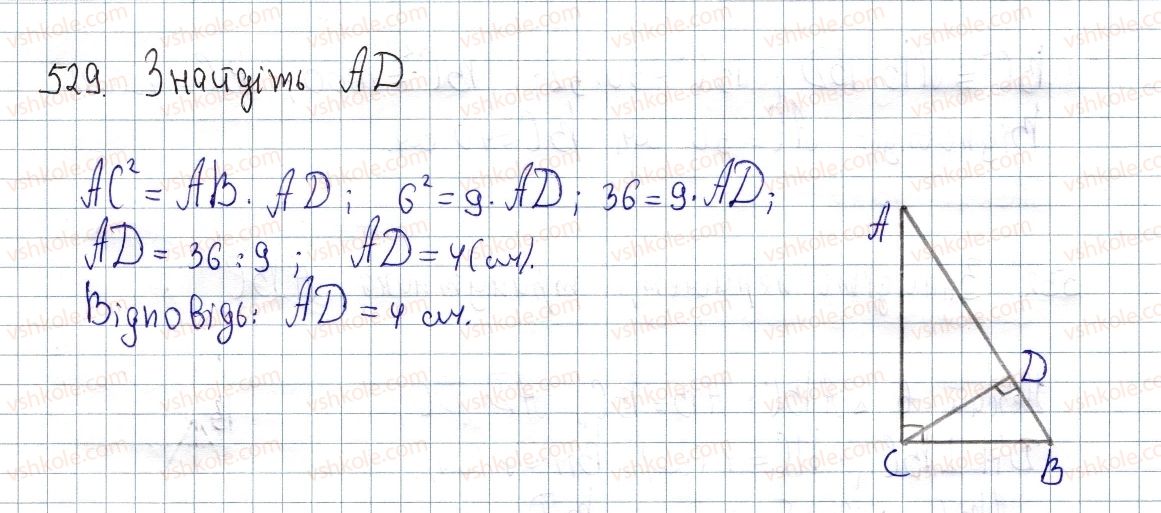 529. Знайдіть AD
AC² = AB · AD; 6² = 9 · AD; 36 = 9 · AD;
AD = 36 : 9; AD = 4 (см).
Відповідь: AD = 4 см.
A
D
C
B
vshkole.com